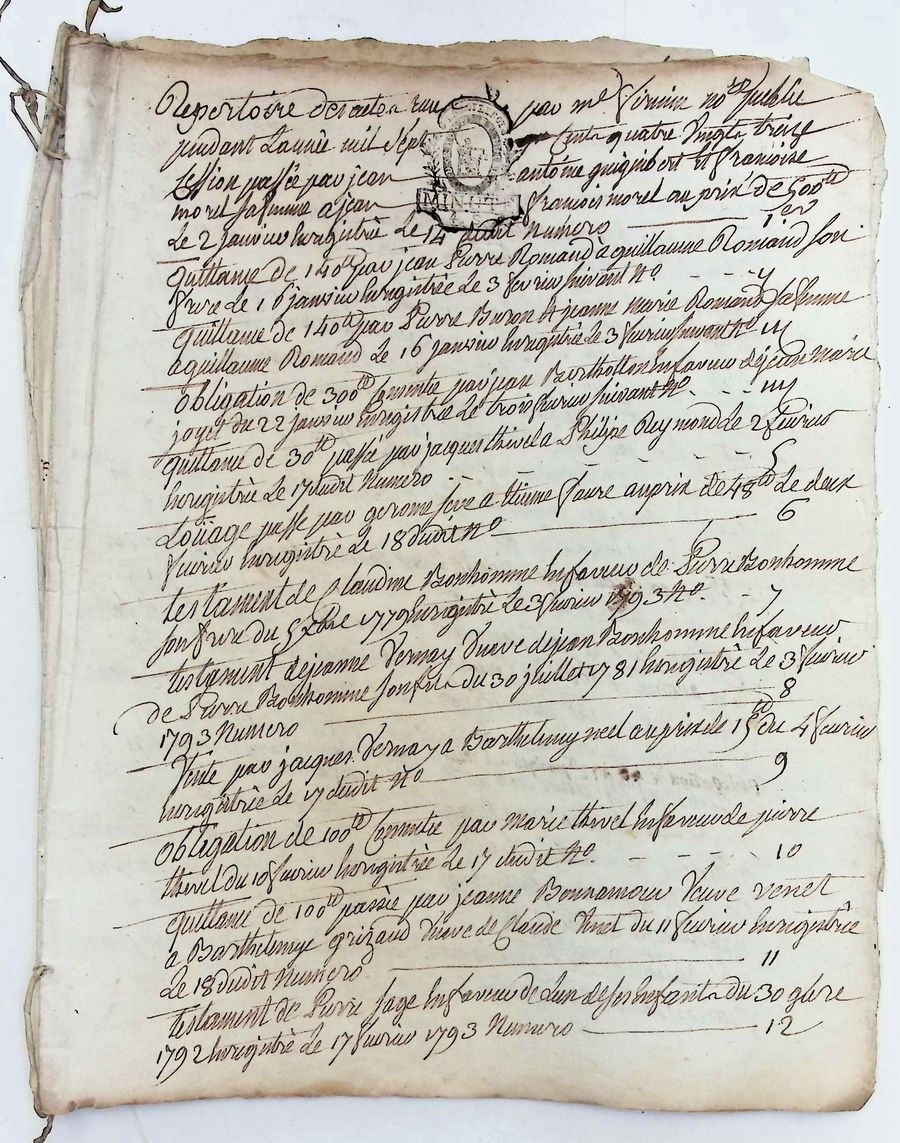 Repertoire des actes par me no.re public
pendant L'année mil Sept Cents quatre Vingts treize
Cession passée par jean antoine guignibert et françoise
morel sa femme a jean françois morel au prix de 500tt
MINUTE
Le 2 janvier Enregistrée Le 14 dudit Numéro 1er
quittance de 140tt par jean Pierre Romand à guillaume Romand son
frere Le 16 janvier Enregistrée Le 3 fevrier suivant No. 
quittance de 140tt par Pierre Buron et jeanne marie Romand sa femme
a guillaume Romand Le 16 janvier Enregistrée Le 3 fevrier suivant No
obligation de 300tt Consentie par jean Berthollon En faveur de jean marie
joyet du 22 janvier Enregistrée Le trois fevrier suivant No.
quittance de 30tt passée par jacques thivel a Philipe Reymond Le 2 fevrier
Enregistrée Le 17 dudit Numero 5
Loüage passé par gerome seve a Etienne faure au prix de 48tt Le deux
fevrier Enregistrée Le 18 dudit No 6
testament de Claudine Bonhomme En faveur de Pierre Bonhomme
son frere du 5 Xbre 1779 Enregistré Le 3 fevrier 1793 No. 7
testament de jeanne Vernay Veuve de jean Bonhomme En faveur
de Pierre Bonhomme son fils du 30 juillet 1781 Enregistré Le 3 fevrier
1793 Numero 8
Vente par jacques Vernay a Barthelemy neel au prix de 15tt du 4 fevrier
Enregistrée Le 17 dudit No 9
obligation de 100tt Consentie par marie thivel En faveur de pierre
thivel du 10 fevrier Enregistrée Le 17 dudit No. 10
quittance de 100tt passée par jeanne Bonnamour Veuve venet
a Barthelemye grizaud Veuve de Claude Venet du 11 fevrier Enregistrée
Le 18 dudit Numero 11
testament de Pierre sage En faveur de L'un de ses Enfants du 30 9bre
1792 Enregistré Le 17 fevrier 1793 Numero 12